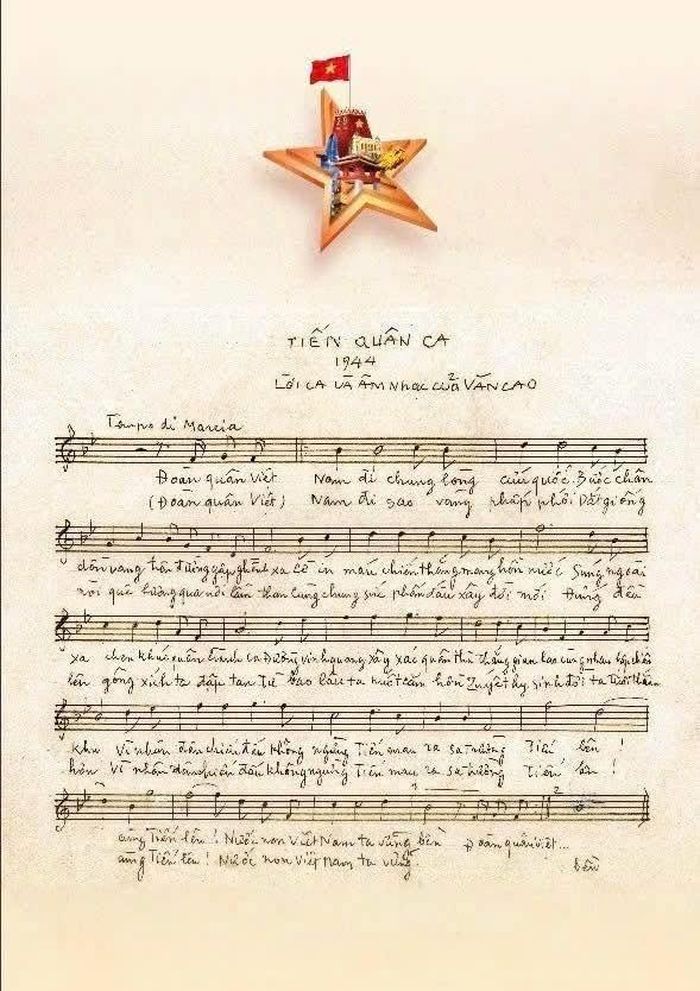 TIẾN QUÂN CA
1944
LỜI CA VÀ ÂM NHẠC CỦA VĂN CAO
Tempo di Marcia
Đoàn quân Việt Nam đi chung lòng cứu quốc. Bước chân
(Đoàn quân Việt) Nam đi sao vàng phấp phới Dắt giống
dồn vang trên đường gập ghềnh xa Cờ in máu chiến thắng mang hồn nước Súng ngoài
nòi quê hương qua nơi lầm than Cùng chung sức phấn đấu xây đời mới Đứng đều
xa chen khúc quân hành ca Đường vinh quang xây xác quân thù Thắng gian lao cùng nhau lập chiến
lên gông xích ta đập tan Từ bao lâu ta nuốt căm hờn Quyết hy sinh đời ta tươi thắm
khu Vì nhân dân chiến đấu không ngừng Tiến mau ra sa trường Tiến lên!
hơn Vì nhân dân chiến đấu không ngừng Tiến mau ra sa trường Tiến lên!
cùng Tiến lên! Nước non Việt Nam ta vững bền Đoàn quân Việt...
cùng Tiến lên! Nước non Việt Nam ta vững bền